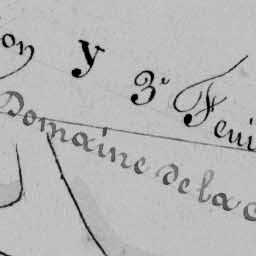 on y 3e Feui
Domaine de la